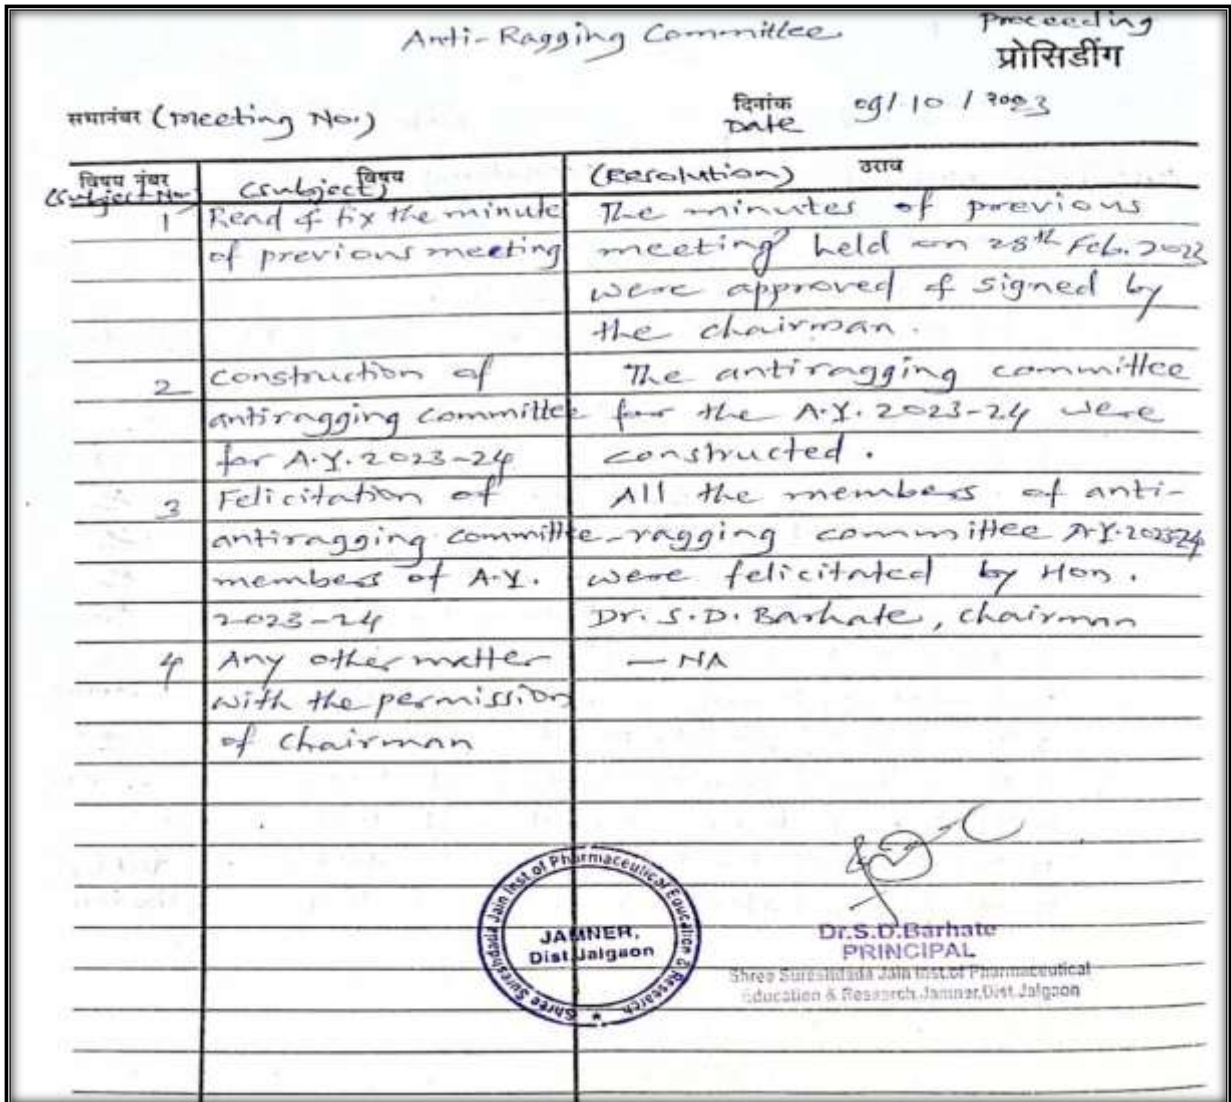 Anti-Ragging Committee
Proceeding
प्रोसिडींग
सभानंबर (Meeting No.)
दिनांक 09/10/2023
Date
विषय नंबर
(Subject No.)
विषय
(Subject)
(Resolution) ठराव
1 Read & fix the minute
of previous meeting
The minutes of previous
meeting held on 28th Feb. 2023
were approved & signed by
the chairman.
2 Construction of
antiragging committee
for A.Y. 2023-24
The antiragging committee
for the A.Y. 2023-24 were
constructed.
3 Felicitation of
antiragging committee
members of A.Y.
2023-24
All the members of anti-
ragging committee A.Y. 2023-24
were felicitated by Hon.
Dr. S.D. Barhate, Chairman
4 Any other matter
with the permission
of Chairman
- NA
Shree Sureshdada Jain Inst of Pharmaceutical Education & Research
JAMNER,
Dist.Jalgaon
Dr.S.D.Barhate
PRINCIPAL
Shree Sureshdada Jain Inst.of Pharmaceutical
Education & Research Jamner,Dist.Jalgaon